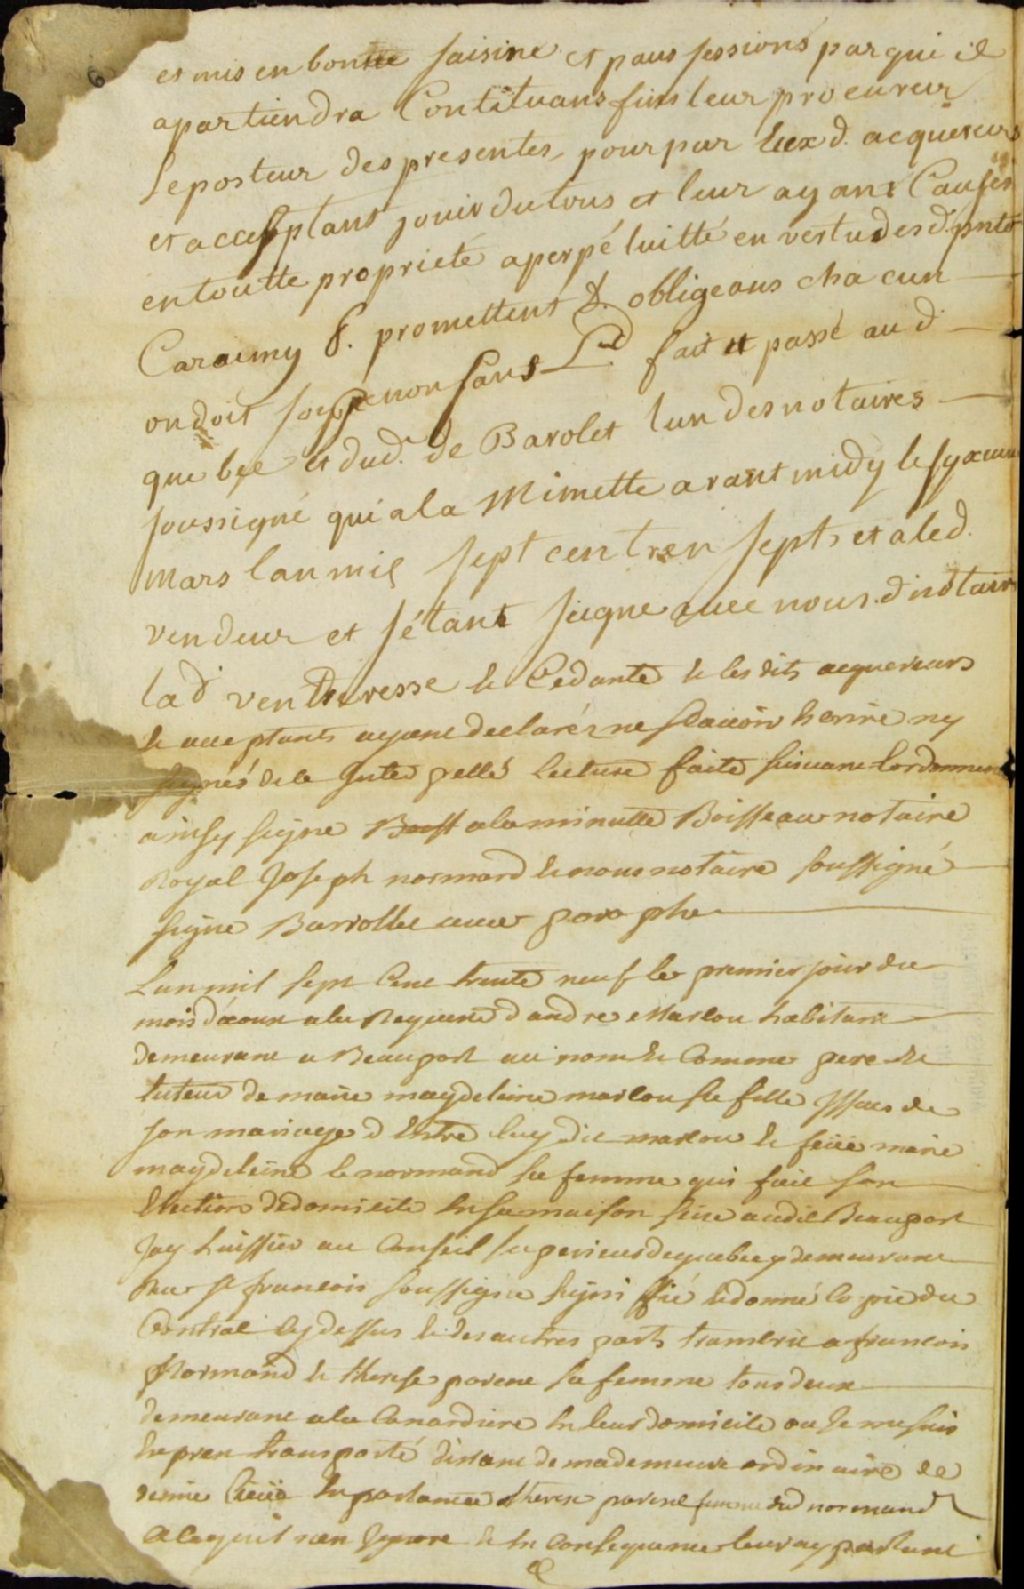 et mis en bonne saisine et paussessions par qui il
apartiendra Contituans sins leur procureur
le posteur des presentes, pour par iceux d. acquereurs
et acceptans jouir du tous et leur ayant Causes
en toutte proprieté aperpétuitté en vertu des d. pntes
Car aimy &. promettent &. obligeans chacun
on doit soy renonsans &d fait et passé aud
quebec et dud. de Barolet lun des notaires
soussigné qui a la Minette avant midy le syxieme
mars lan mil sept cent tren sept, et a led.
vendeur et s'étant signe avec nous. d notaire
lad venderesse le Cedante & les dits acquereurs
& acceptants ayant declarés ne scavoir Escrire ny
signés de ce Interpellé lecture faite suivant lordonnance
ainsy signe a la minutte Boisseau notaire
Royal Joseph normand & nous notaire soussigné
signe Barrollet avec paraphe
Lan mil sept Cent trente neuf le premier jour du
mois d'aoux a la Requeste d andre Marcou habitant
demeurant a Beauport au nom & Comme pere &
tuteur de marie magdeleine marcou sa fille Issues de
son mariage d Entre luy dit marcou & feüe marie
magdeleine le normand sa femme qui fait son
Election de domicile En sa maison size audit Beauport
Jay huissier au Conseil superieur de quebec y demeurant
Rue st francois soussigne signiffié & donné copie du
Contrat cy dessus & des autres parts transcrit a francois
Normand & therese parent sa femme tous deux
demeurant a la Canardiere En leur domicile ou Je me suis
Expres transporté distant de ma demeure ordinaire de
demie Lieüe En parlant a therese parent femme dud normand
a ce quil nen Ignore & En Consequence leur ay parlant